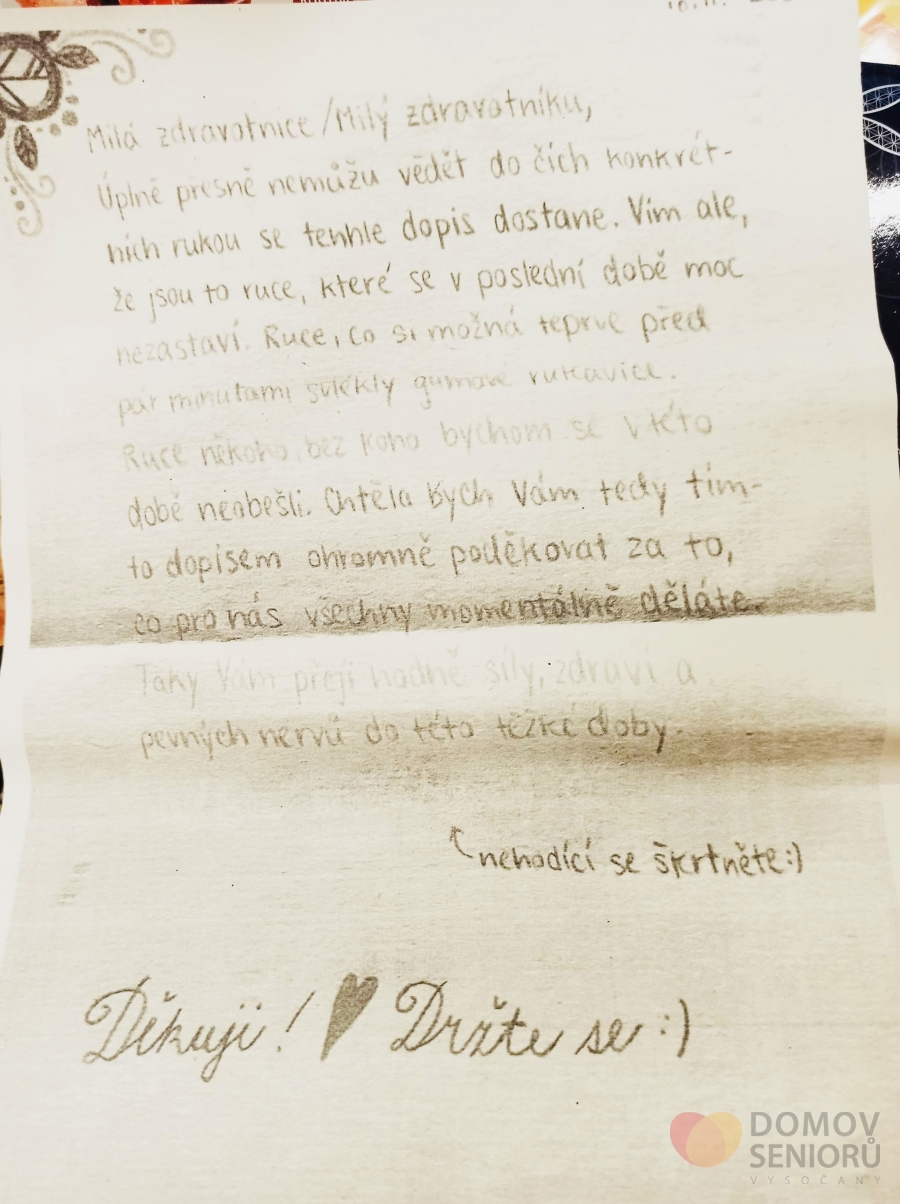 Milá zdravotnice/Milý zdravotníku,
Úplně přesně nemůžu vědět do čích konkrét-
ních rukou se tenhle dopis dostane. Vím ale,
že jsou to ruce, které se v poslední době moc
nezastaví. Ruce, co si možná teprve před
pár minutami svlékly gumové rukavice.
Ruce někoho, bez koho bychom se v této
době neobešli. Chtěla bych Vám tedy tím-
to dopisem ohromně poděkovat za to,
co pro nás všechny momentálně děláte.
Taky Vám přeji hodně síly, zdraví a
pevných nervů do této těžké doby.
nehodící se škrtněte:)
Děkuji! Držte se :)
DOMOV
SENIORŮ
VYSOČANY